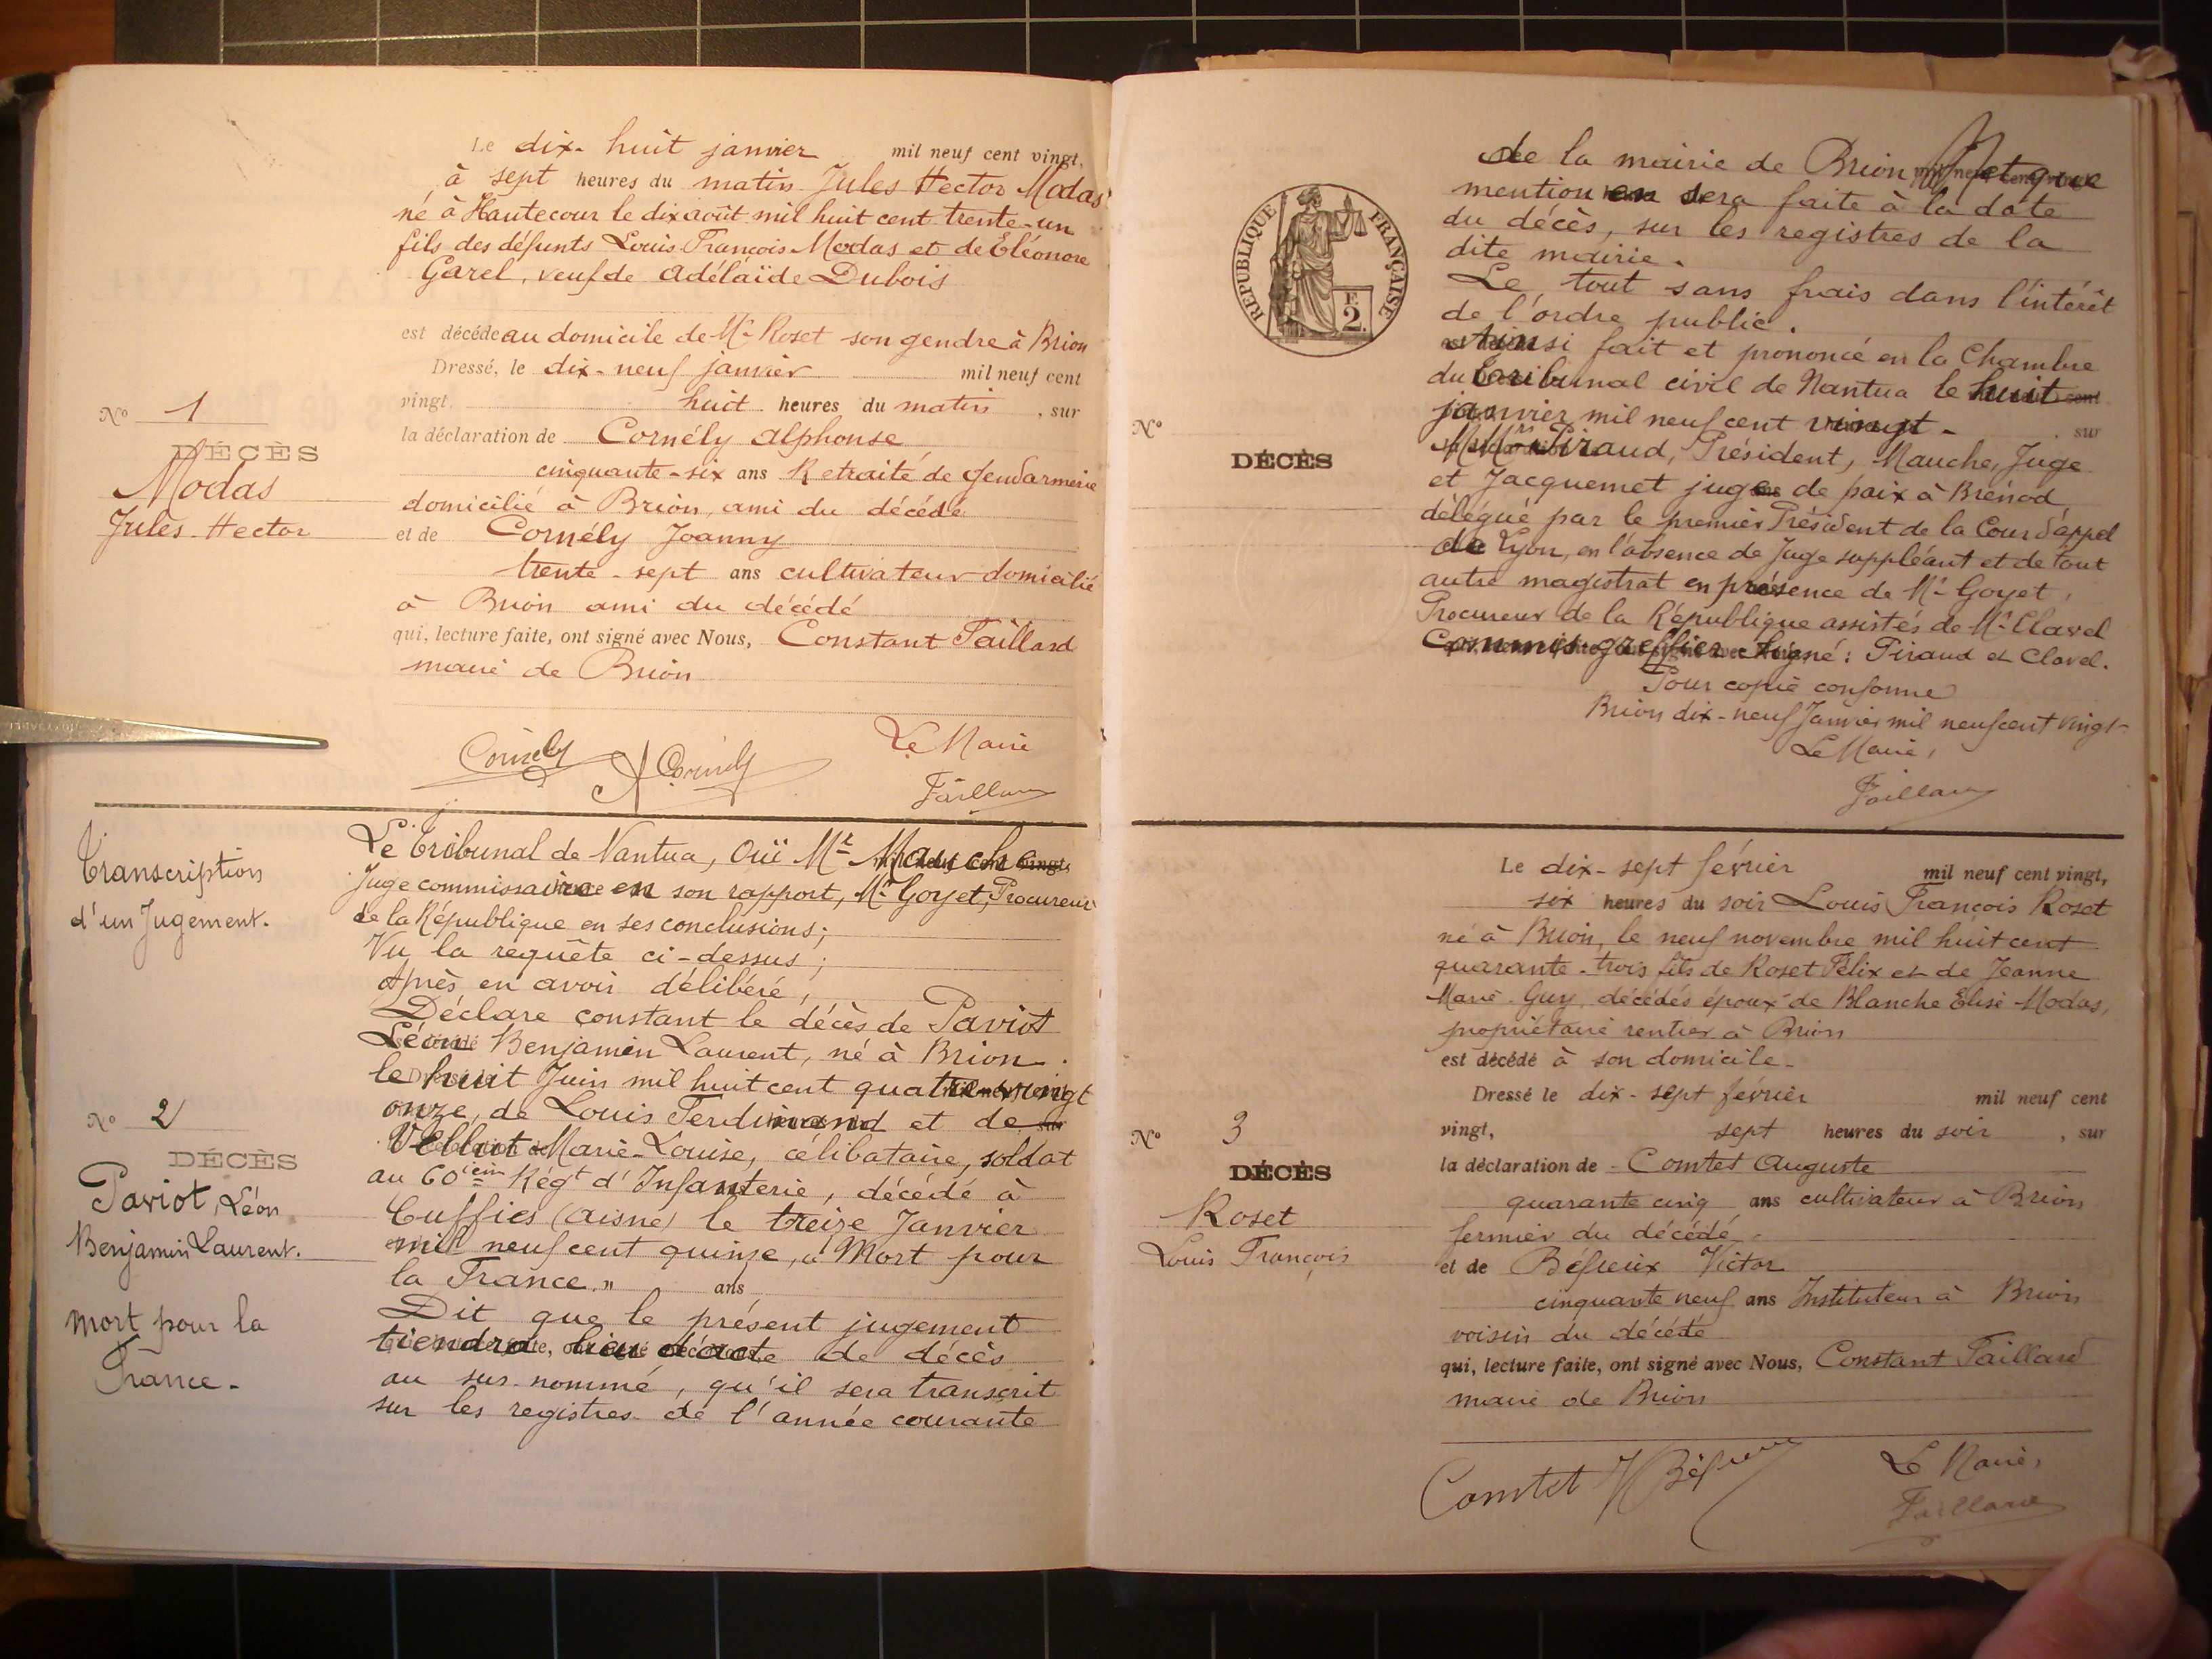 Le dix-huit janvier mil neuf cent vingt,
à sept heures du matin Jules Hector Modas
né à Hautecour le dix août mil huit cent trente-un
fils des défunts Louis François Modas et de Eléonore
Garel, veuf de Adélaïde Dubois
est décédé au domicile de Mr Roset son gendre à Brion
Dressé, le dix-neuf janvier mil neuf cent
vingt, huit heures du matin, sur
la déclaration de Cornély Alphonse
cinquante-six ans Retraité de Gendarmerie
domicilié à Brion, ami du décédé
et de Cornély Joanny
trente-sept ans cultivateur domicilié
à Brion ami du décédé
qui, lecture faite, ont signé avec Nous, Constant Taillard
maire de Brion
No 1
DÉCÈS
Modas
Jules Hector
Cornély Cornély Le Maire
Taillard
Transcription
d'un Jugement.
No 2
DÉCÈS
Paviot, Léon
Benjamin Laurent.
Mort pour la
France.
Le Tribunal de Nantua, Ouï Mr Mauche
Juge commissaire en son rapport, Mr Goyet, Procureur
de la République en ses conclusions;
Vu la requête ci-dessus;
Après en avoir délibéré,
Déclare constant le décès de Paviot
Léon Benjamin Laurent, né à Brion
le huit Juin mil huit cent quatre-vingt
onze, de Louis Ferdinand et de
Vellut Marie-Louise, célibataire, soldat
au 60ièm Régt d'Infanterie, décédé à
Cuffies (Aisne) le treize Janvier
mil neuf cent quinze, "Mort pour
la France." ans
Dit que le présent jugement
tiendra lieu d'acte de décès
au sus-nommé, qu'il sera transcrit
sur les registres de l'année courante
de la mairie de Brion et que
mention en sera faite à la date
du décès, sur les registres de la
dite mairie.
Le tout sans frais dans l'intérêt
de l'ordre public.
Ainsi fait et prononcé en la Chambre
du Tribunal civil de Nantua le huit
janvier mil neuf cent vingt. sur
MMrs Piraud, Président, Mauche, Juge
et Jacquemet juge de paix à Brénod
délégué par le premier Président de la Cour d'appel
de Lyon, en l'absence de Juge suppléant et de tout
autre magistrat en présence de Mr Goyet,
Procureur de la République assistés de Mr Clavel
Commis-greffier Signé: Piraud et Clavel.
Pour copie conforme
Brion dix-neuf Janvier mil neuf cent vingt
Le Maire,
Taillard
RÉPUBLIQUE FRANÇAISE
E.
2.
No
DÉCÈS
Le dix-sept février mil neuf cent vingt,
six heures du soir Louis François Roset
né à Brion, le neuf novembre mil huit cent
quarante-trois fils de Roset Félix et de Jeanne
Marie Guy, décédés époux de Blanche Elise Modas,
propriétaire rentier à Brion
est décédé à son domicile
Dressé le dix-sept février mil neuf cent
vingt, sept heures du soir, sur
la déclaration de Comtet Auguste
quarante cinq ans cultivateur à Brion
fermier du décédé
et de Béjueix Victor
cinquante neuf ans Instituteur à Brion
voisin du décédé
qui, lecture faite, ont signé avec Nous, Constant Taillard
maire de Brion
No 3
DÉCÈS
Roset
Louis François
Comtet Le Maire,
Taillard